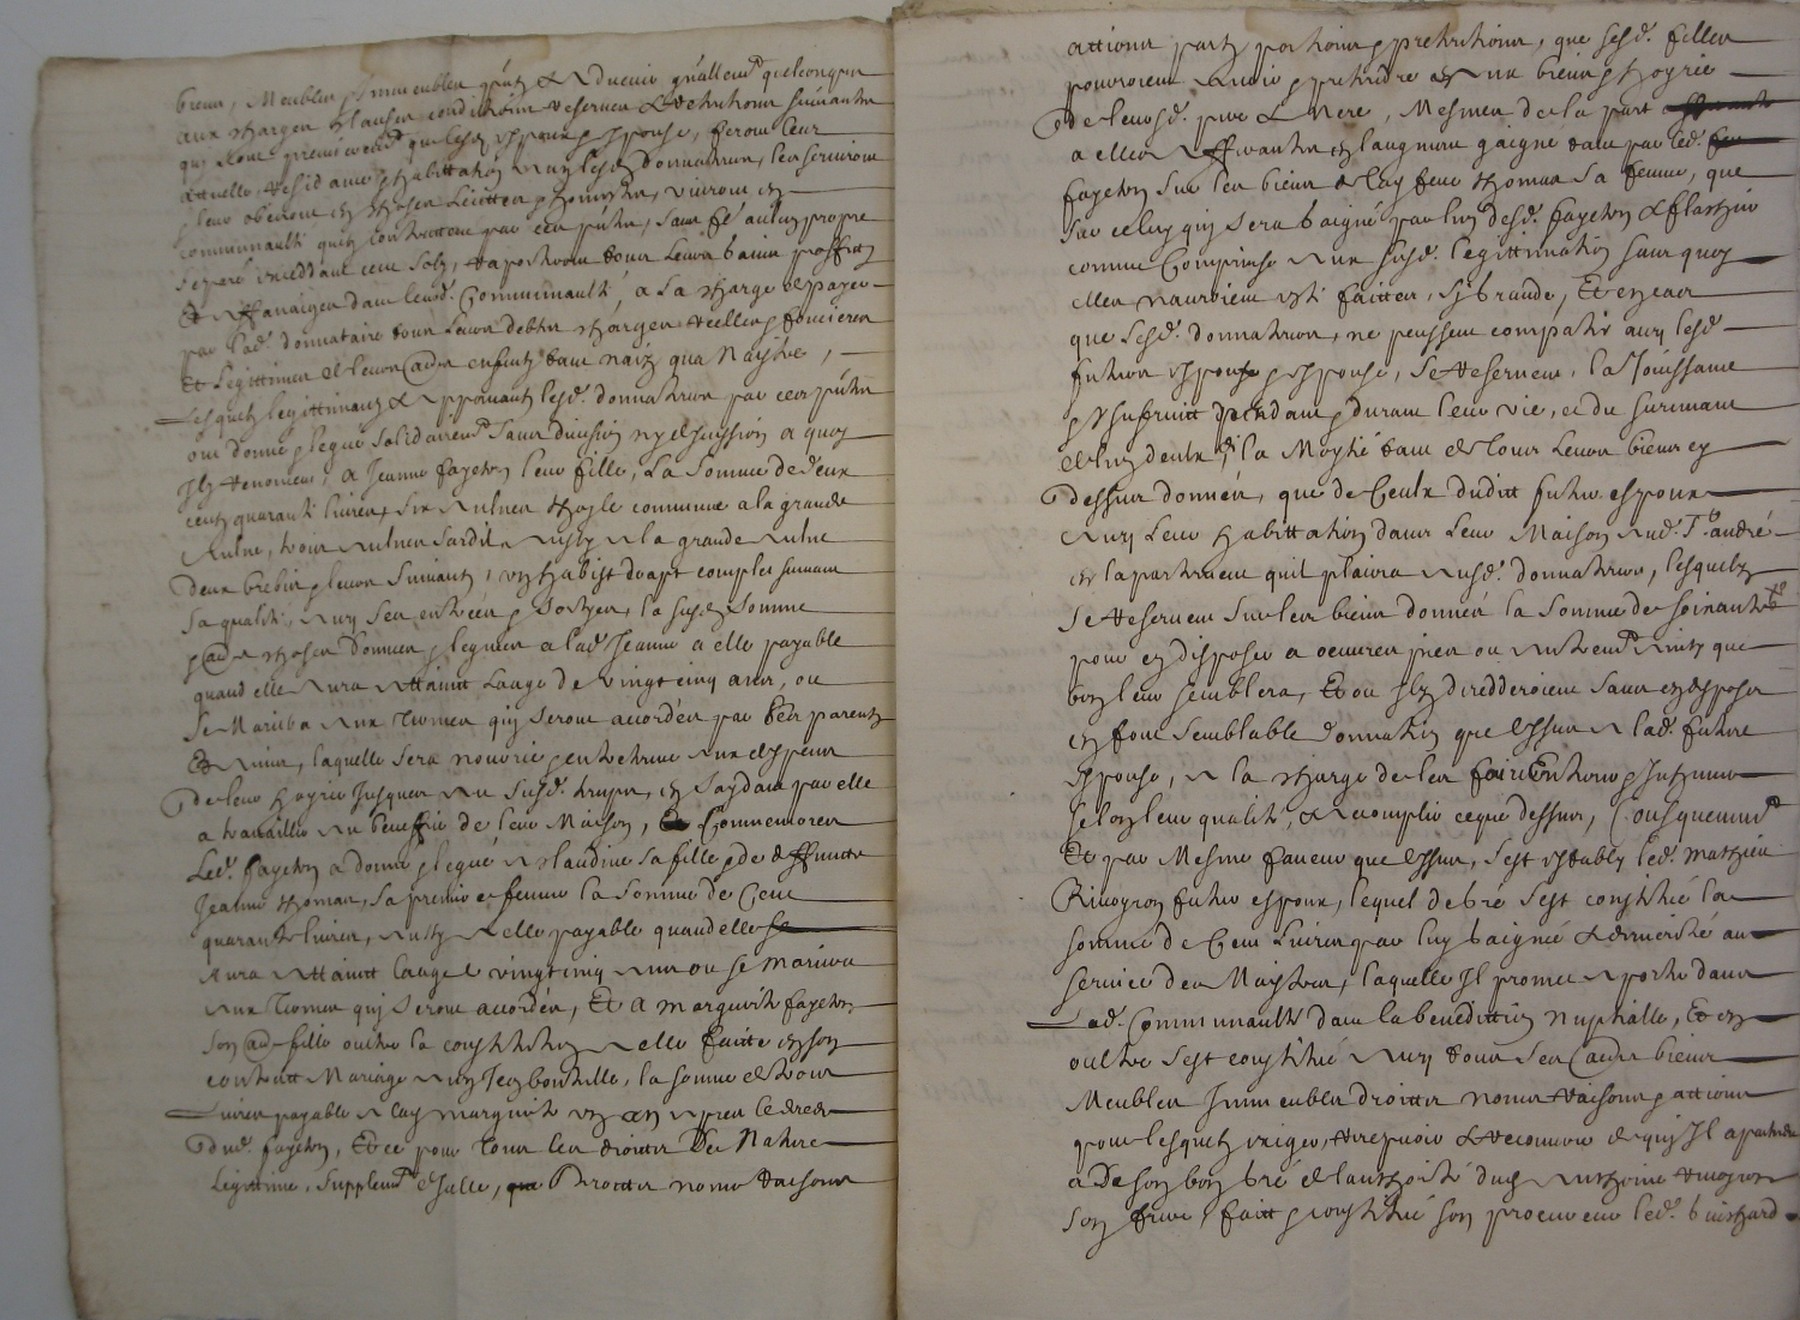 biens, Meubles & Immeubles p̃ntz & Aduenir qu'allem^t quelconques
aux charges clauses conditions reserues & retentions suiuantes
qui sont premierem^t que lesd espoux & espouse, feront leur
attuelle residance & habittation auec lesd donnateurs, les seruiront
& leur obeiront en choses licittes & honnestes, viuront en
communaulté quilz contrattent par ces p̃ntes, sans
exceddant cent solz, rapporteront tous leurs gains proffitz
Et dans leurd. Communaulté, a la charge de payer
par lad. donnataire tous leurs debtes charges reelles & foncieres
Et legittimes de leurs enfantz tant naiz qua Naystre,
Lesquelz legittimant & appanant lesd. donnateurs par ces p̃ntes
ont donné & legué solidairem^t sans diuision ny discussion a quoy
Ilz renoncent, a Jeanne fayeton leur fille, La Somme de deux
centz quarante liures, six aulnes thoyle commune a la grande
Aulne, trois aulnes sardil aussy a la grande aulne
Deux brebis & leurs suiuantz, un habist drapt complet suiuant
sa qualité, auec ses entrées & sortyes, la susd somme
& choses données & leguées a lad Jeanne a elle payable
quand elle aura attaintt l'aage de vingt cinq ans, ou
se Mariera aux Termes quy seront accordés par ses parentz
Et amis, laquelle sera nourrie & entretenue aux despens
de leur hoyrie Jusques au susd. temps, en faydant par elle
a trauailler au beneffice de leur Maison, Comme encores
Led. fayeton a donné & legué a Claudine sa fille & de deffuncte
Jeanne thomas, sa premiere femme la somme de Cent
quarante liures, aussy a elle payable quand elle
Aura attaintt l'aage de vingt cinq ans ou se Mariera
aux Termes quy seront accordés, Et a Marguerite fayeton
son fille oultre la constitution a elle faicte en son
contratt Mariage auec Jean bonteille, la somme de trois
Liures payable a lad marguerite un an apres le deces
dud. fayeton, Et ce pour tous les droictz De Nature
Legittime, supplem^t d'Icelle, Droictz noms raisons
attions partz portions & pretentions, que sesd. filles
pourroient auoir & pretendre aux biens & hoyrie
de leursd. pere & Mere, Mesmes de la part
a elles afferantes en l'augment gaigné par led.
fayeton sur les biens de lad feue thomas sa femme, que
sur celuy quy sera gaigné par led. fayeton & flachier
comme Comprinse aux susd. legittimation sans quoy
elles n'auroient esté faictes, sy grande, Et en cas
que lesd. donnateurs, ne peussent compatir auec lesd
futurs espoux & espouse, se reseruent, la Jouissance
& Vsufruitt pendant & durant leur vie, et du suruiuant
d'eulx deulx, de la Moytié de tous leurs biens cy
dessus donnés, que de Ceulx duditt futur espoux
auec leur habittation dans leur Maison aud. S^t andré
en lapartement quil plaira ausd. donnateurs, lesquelz
se reseruent sur les biens donnés la somme de soixante
pour en disposer a oeuures pies ou autrem^t ainsy que
bon leur semblera, Et ou Ilz deceddroient sans en disposer
en font semblable donnation que dessus a lad. future
espouse, a la charge de les faire Enterrer & Inhumer
selon leur qualité, & accomplir ce que dessus, Consequemm^t
Et par Mesme faueur que dessus, s'est estably led. Mathieu
Riuoyron futur espoux, lequel de gré s'est constitué la
somme de Cent Liures par luy gaignée au
seruice des Maystres, laquelle Il promet aporter dans
Lad. Communaulté dans la benedittion nuptialle, Et en
oultre s'est constitué auec tous ses biens
Meubles Immeubles droictz noms raisons & attions
pour lesquelz exiger, receuoir & recouurer de quy Il apartiendra
a De son bon gré de l'authorité dud anthoine riuoyron
son frere, faict & constitué son procureur led. guichard